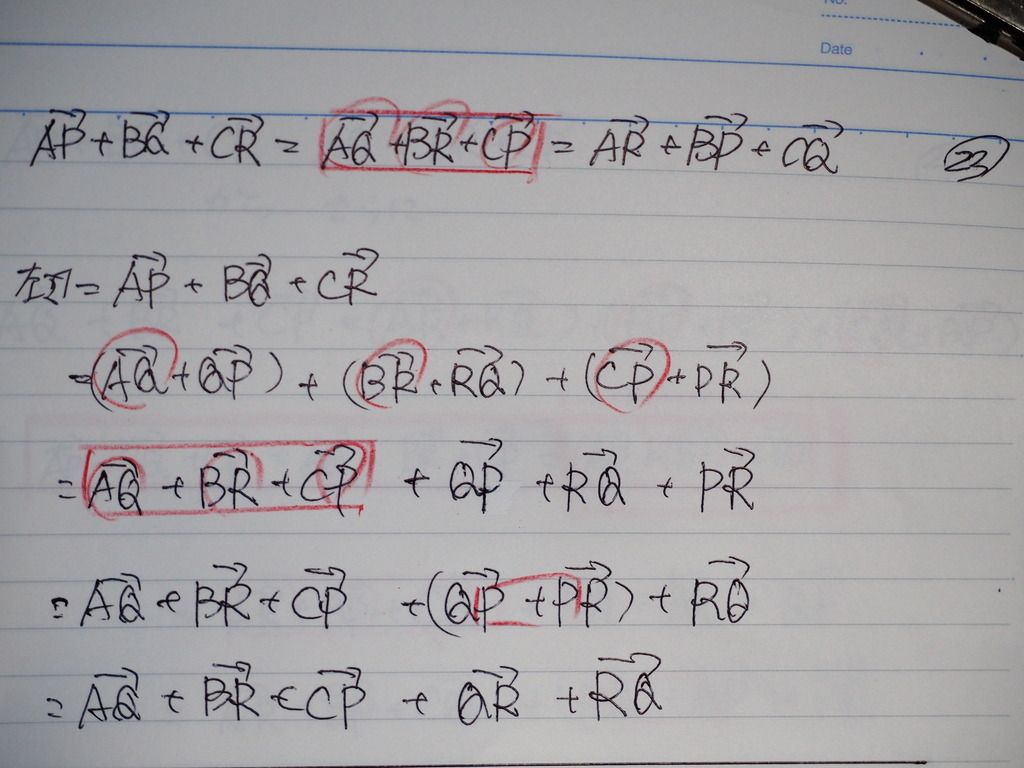 No.
Date
$\overrightarrow{AP}+\overrightarrow{BQ}+\overrightarrow{CR}=\overrightarrow{AQ}+\overrightarrow{BR}+\overrightarrow{CP}=\overrightarrow{AR}+\overrightarrow{BP}+\overrightarrow{CQ}$ 23
左辺 $=\overrightarrow{AP}+\overrightarrow{BQ}+\overrightarrow{CR}$
$=(\overrightarrow{AQ}+\overrightarrow{QP})+(\overrightarrow{BR}+\overrightarrow{RQ})+(\overrightarrow{CP}+\overrightarrow{PR})$
$=\overrightarrow{AQ}+\overrightarrow{BR}+\overrightarrow{CP}+\overrightarrow{QP}+\overrightarrow{RQ}+\overrightarrow{PR}$
$=\overrightarrow{AQ}+\overrightarrow{BR}+\overrightarrow{CP}+(\overrightarrow{QP}+\overrightarrow{PR})+\overrightarrow{RQ}$
$=\overrightarrow{AQ}+\overrightarrow{BR}+\overrightarrow{CP}+\overrightarrow{QR}+\overrightarrow{RQ}$